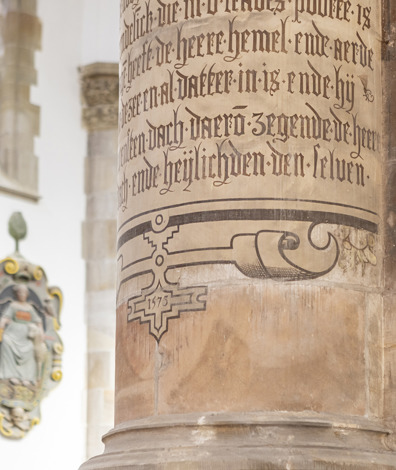 die in v poorte is
heeft de heere hemel ende aerde
zee en al datter in is ende hy
dach daerō zegende de heere
ende heylichden den selven
1573